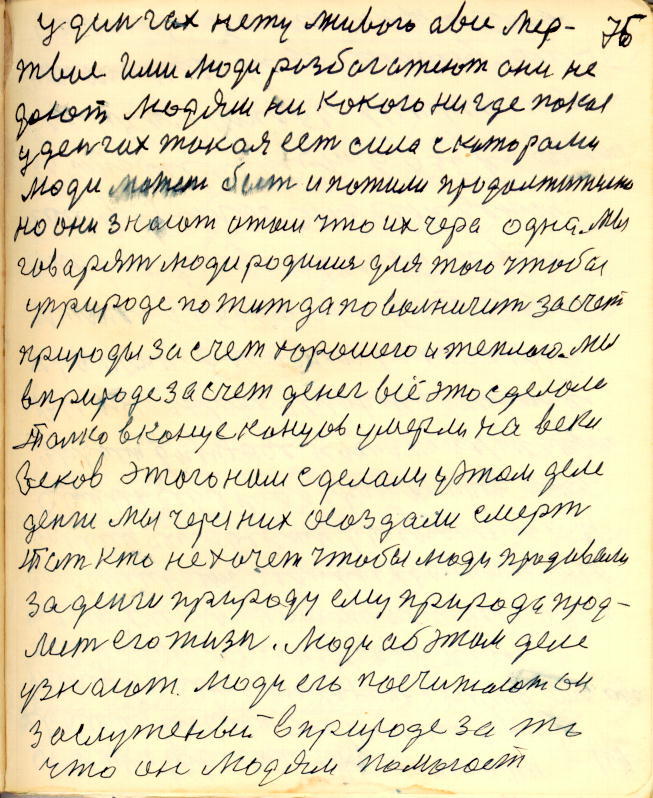 у денгах нету живого а вче мер- 75
твое Ими люди розбогатеют они не
доют людям ни какого нигде покоя
у денгах токоя ест сила с которами
люди может быт и пожили продолжително
но они знают отом что их чера одна. Мы
говарят люди родилия для того чтобы
уприроде пожит да поволничит засчот
природы засчет хорошого и теплого. Мы
вприроде засчет денег всё это сделоли
Толко вконце концов умерли на веки
веков этого нам сделали у этом деле
денги мы через них создали смерт
Тот кто не хочет чтобы люди продавали
за денги природу ему природа прод-
лит его жизн. Люди об этом деле
узнают. Люди его посчитают он
заслуженый вприроде за то
что он людям помогает